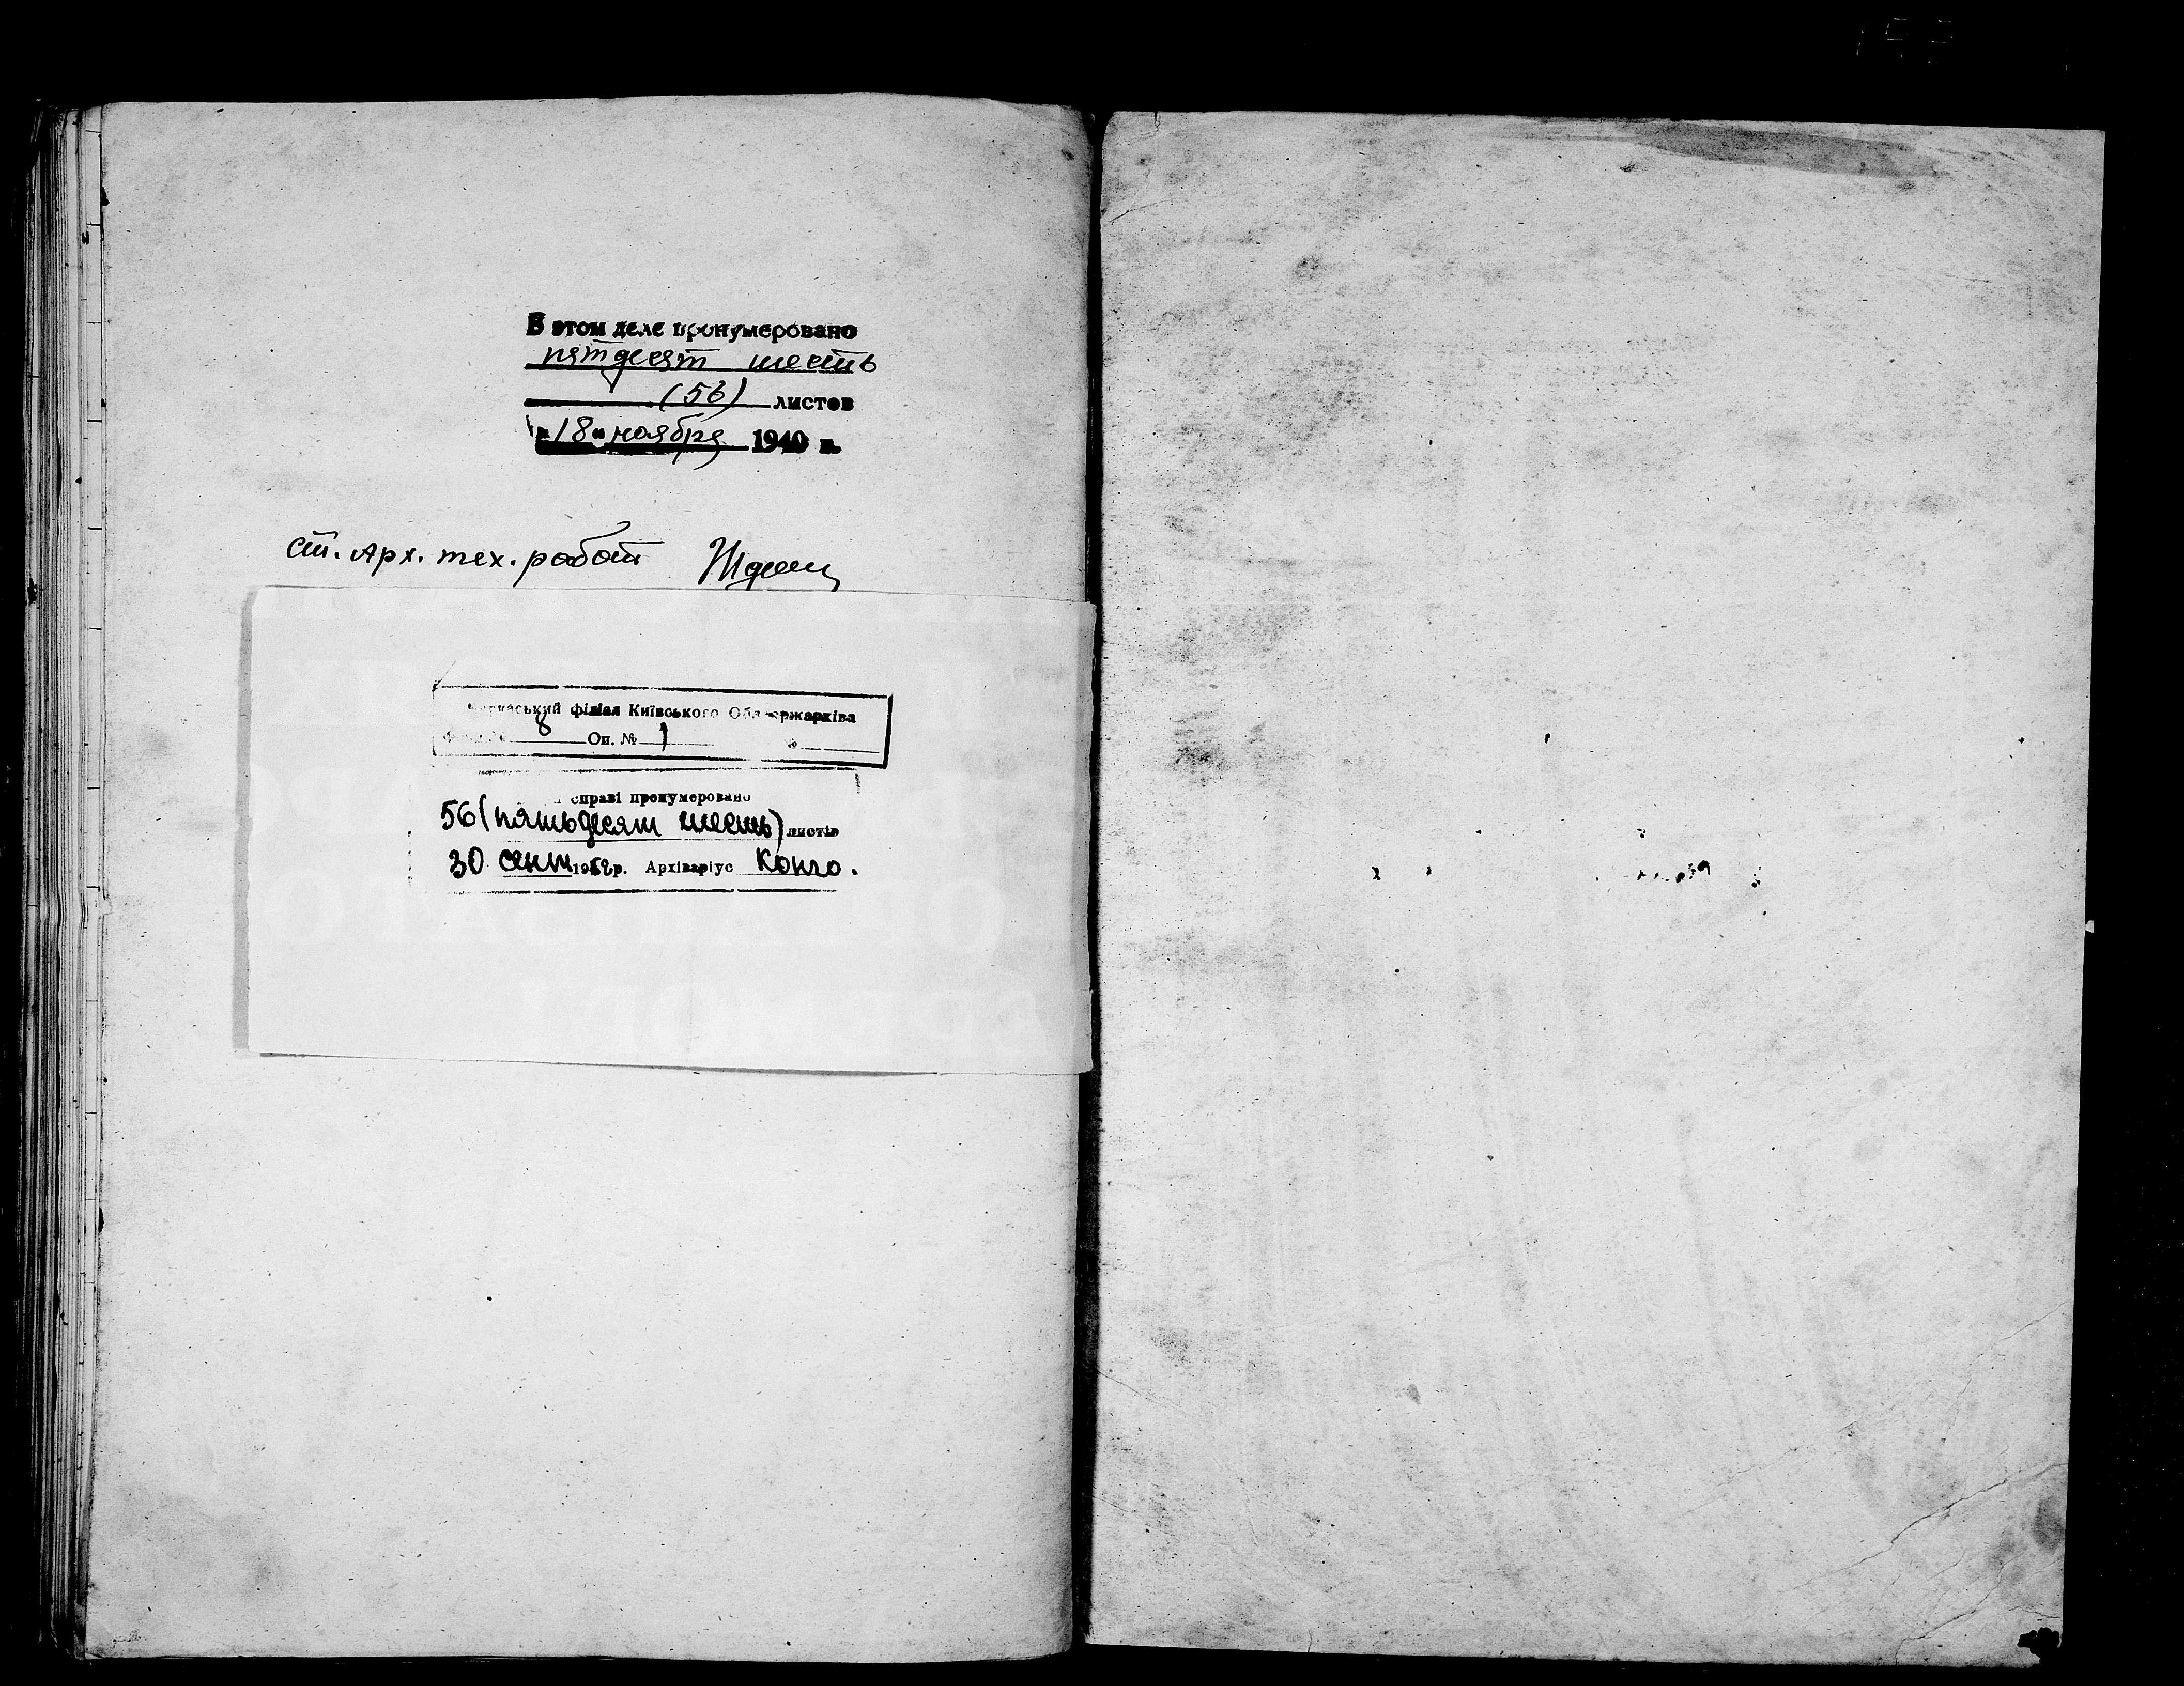 В этом деле пронумеровано
пятдесят шесть
(56) листов
"18" ноября 1940 г.
ст. Арх. тех. работ
Черкаський філіал Київського Облдержархіва
8 Оп. № 1 №
справі пронумеровано
56 (пятьдесят шесть) листів
30 сент 1952 р. Архіваріус Конго.